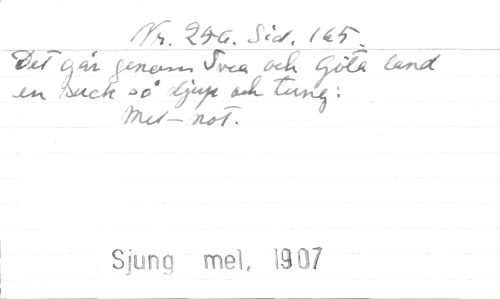 Nr. 246. Sid. 165.
Det går genom Svea och Göta land
en suck så djup och tung:
Mel-not.
Sjung mel. 1907